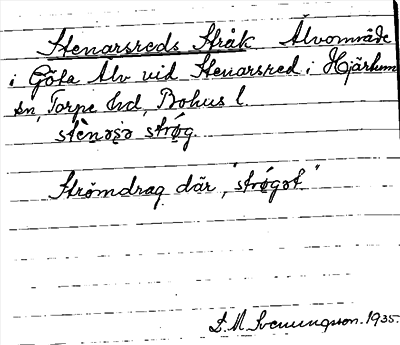 Stenarsreds Stråk Älvområde
i Göta Älv vid Stenarsred i Hjärtum
sn, Torpe hd, Bohus l.
Strömdrag där, "strǿgət"
D. M. Svenungsson. 1935.